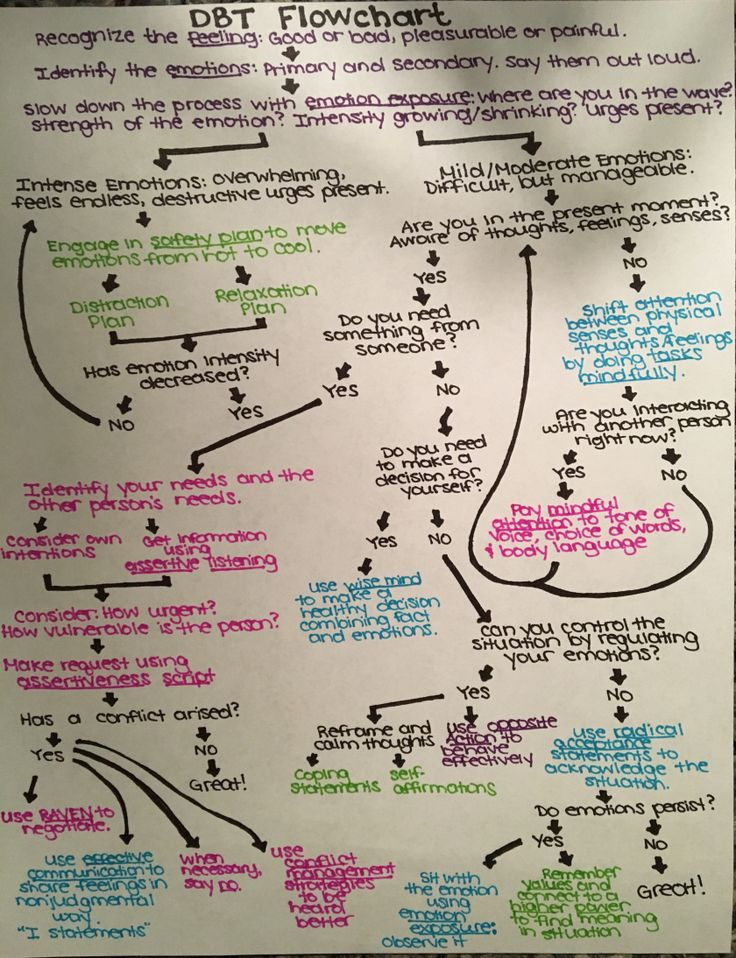 DBT Flowchart
Recognize the feeling: Good or bad, pleasurable or painful.
Identify the emotions: Primary and secondary. Say them out loud.
Slow down the process with emotion exposure: where are you in the wave?
strength of the emotion? Intensity growing/shrinking? urges present?
Intense Emotions: overwhelming,
feels endless, destructive urges present.
Engage in safety plan to move
emotions from hot to cool.
Distraction
Plan
Relaxation
Plan
Has emotion intensity
decreased?
No
Yes
Mild/Moderate Emotions:
Difficult, but manageable.
Are you in the present moment?
Aware of thoughts, feelings, senses?
Yes
No
Do you need
something from
someone?
Yes
No
Shift attention
between physical
senses and
thoughts/feelings
by doing tasks
mindfully.
Are you interacting
with another person
right now?
Yes
No
Pay mindful
attention to tone of
voice, choice of words,
& body language
Do you need
to make a
decision for
yourself?
Yes
No
use wise mind
to make a
healthy decision
combining fact
and emotions.
Identify your needs and the
other person's needs.
Consider own
intentions
Get information
using
assertive listening
Consider: How urgent?
How vulnerable is the person?
Make request using
assertiveness script
Has a conflict arised?
Yes
No
Great!
use RAVEN to
negotiate.
use effective
communication to
share feelings in
nonjudgmental
way.
"I statements"
when
necessary,
say no.
use
conflict
management
strategies
to be
heard
better
Can you control the
situation by regulating
your emotions?
Yes
No
Reframe and
calm thoughts
Coping
statements
self-
affirmations
use opposite
Action to
behave
effectively
use radical
acceptance
statements to
acknowledge the
situation.
Do emotions persist?
Yes
No
Great!
Sit with
the emotion
using
emotion
exposure:
observe it
Remember
values and
connect to a
higher power
to find meaning
in situation